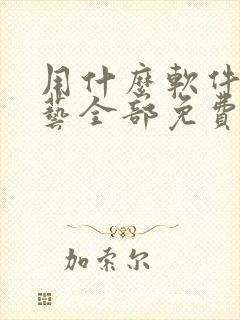 用什麼軟件
藝全部免費
加索尔